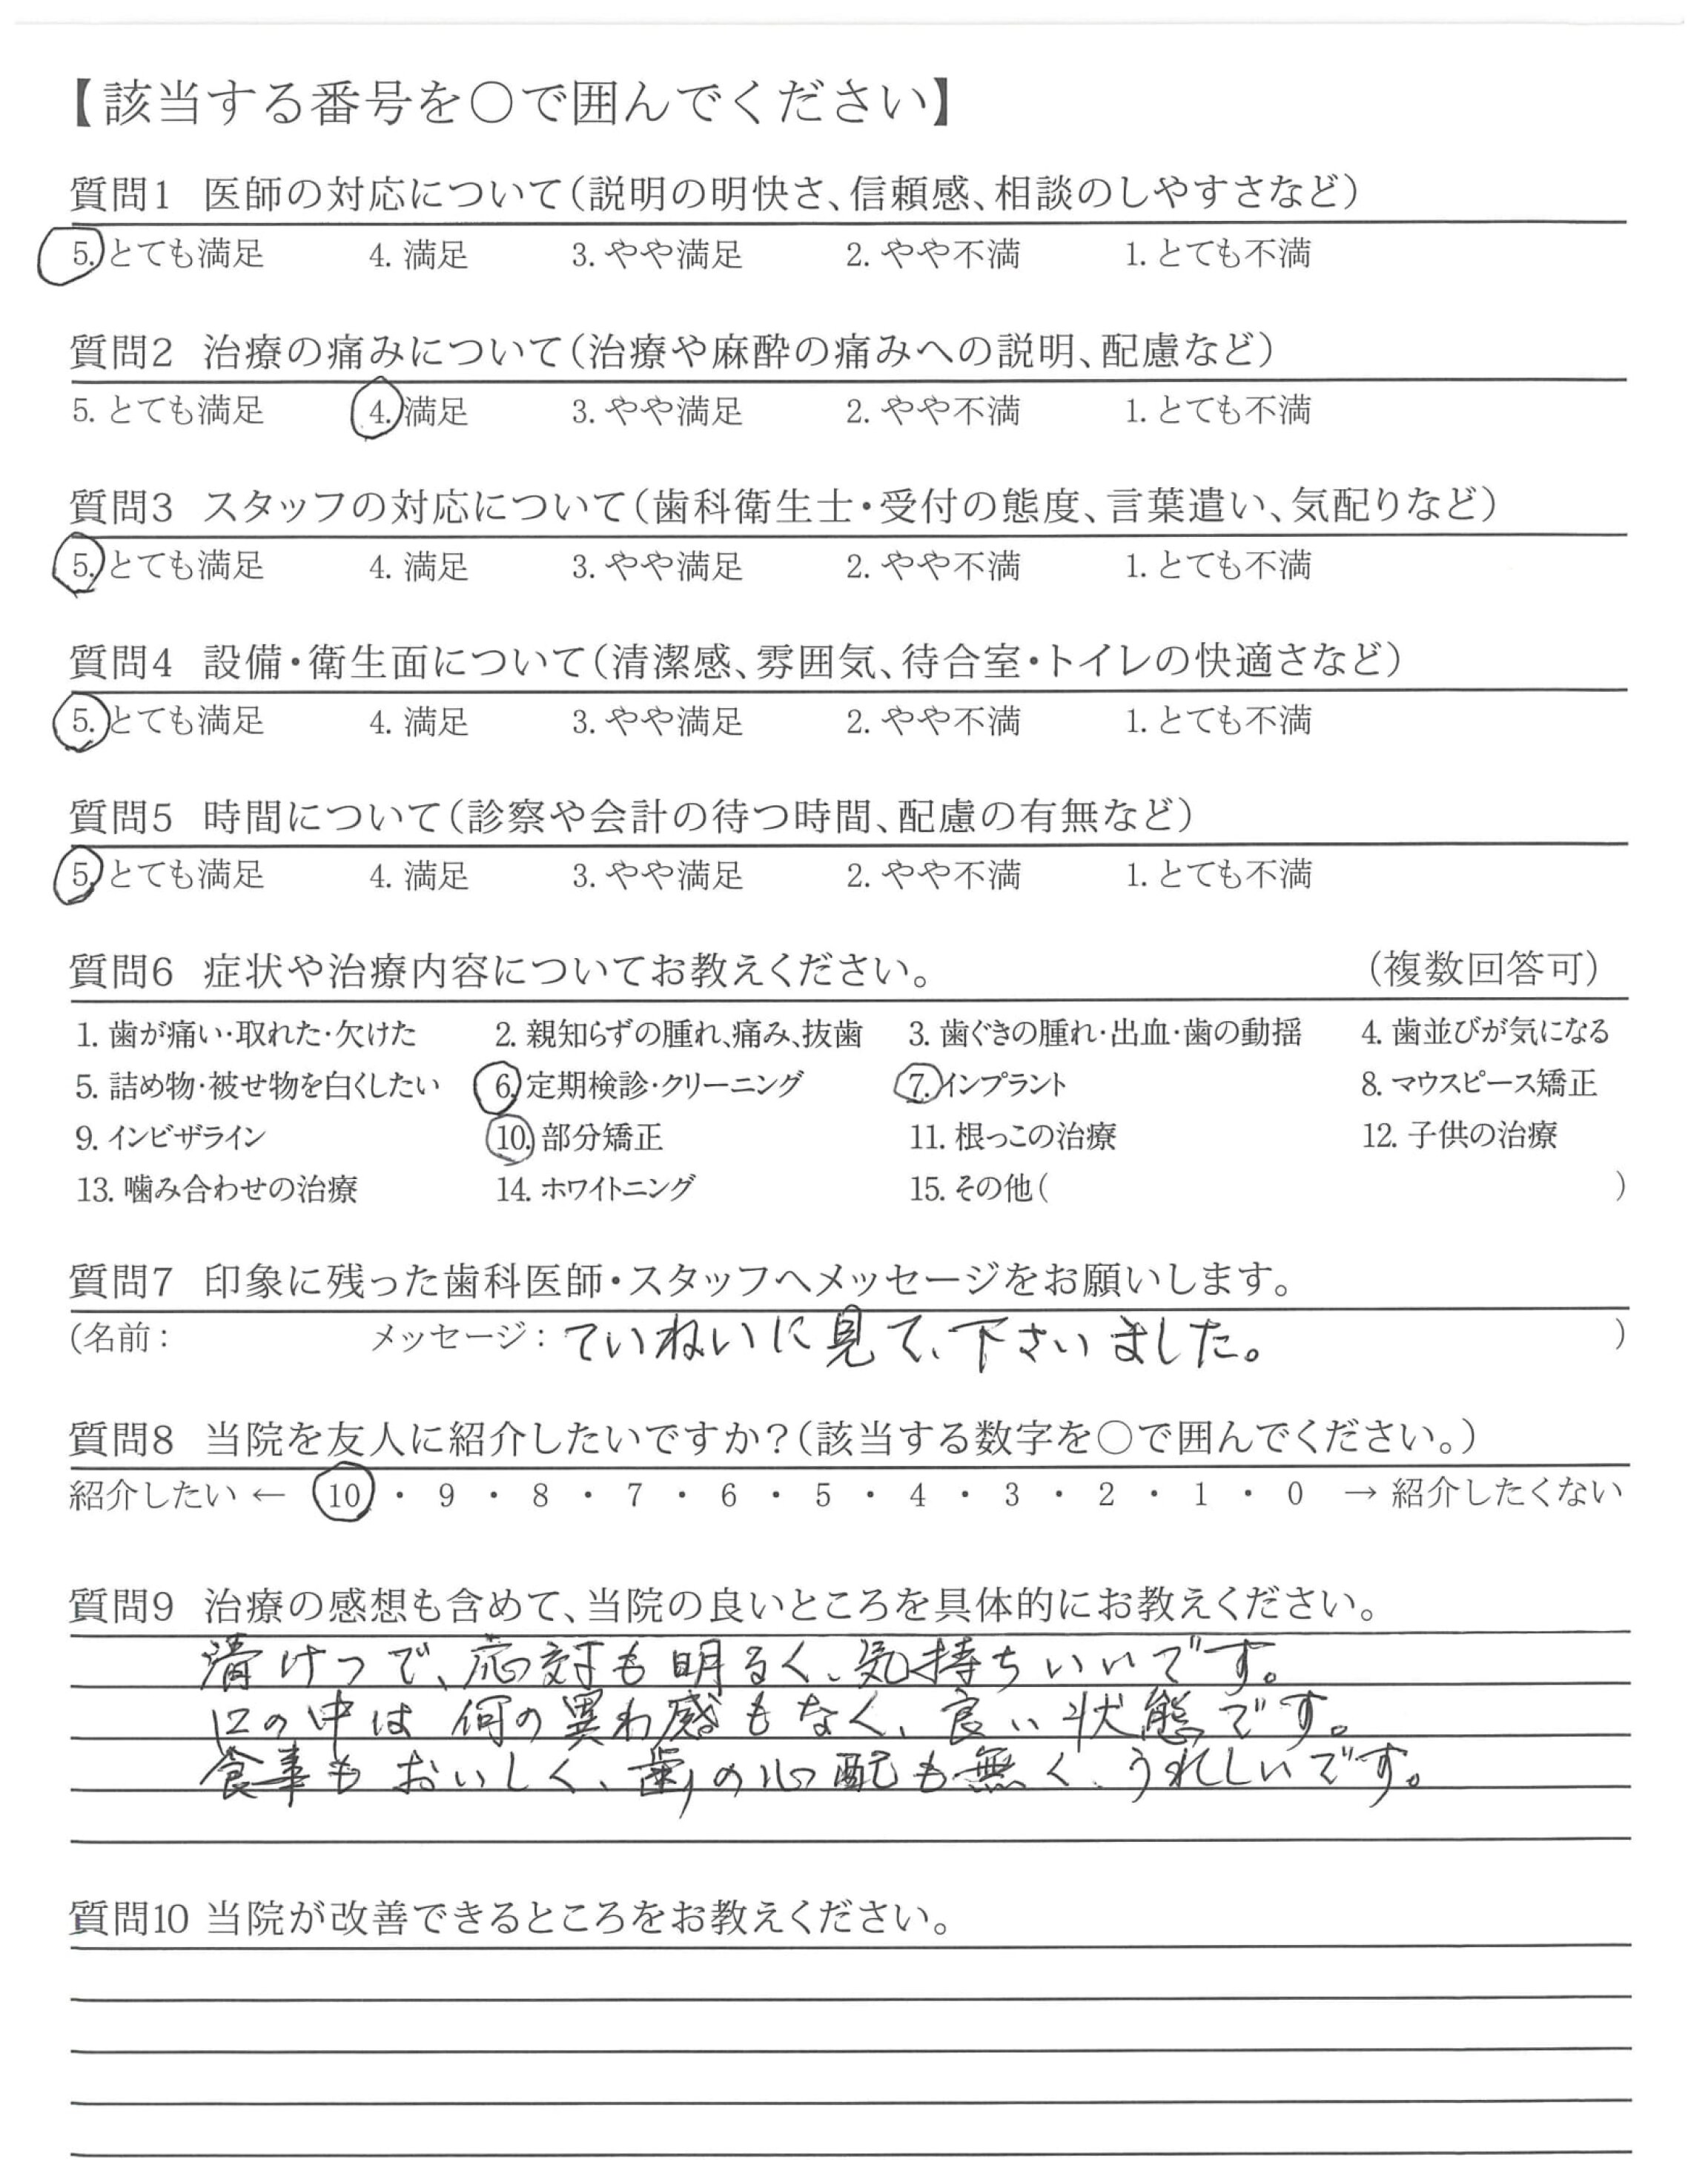 【該当する番号を〇で囲んでください】
質問1 医師の対応について(説明の明快さ、信頼感、相談のしやすさなど)
5. とても満足 4. 満足 3. やや満足 2. やや不満 1. とても不満
質問2 治療の痛みについて(治療や麻酔の痛みへの説明、配慮など)
5. とても満足 4. 満足 3. やや満足 2. やや不満 1. とても不満
質問3 スタッフの対応について(歯科衛生士・受付の態度、言葉遣い、気配りなど)
5. とても満足 4. 満足 3. やや満足 2. やや不満 1. とても不満
質問4 設備・衛生面について(清潔感、雰囲気、待合室・トイレの快適さなど)
5. とても満足 4. 満足 3. やや満足 2. やや不満 1. とても不満
質問5 時間について(診察や会計の待つ時間、配慮の有無など)
5. とても満足 4. 満足 3. やや満足 2. やや不満 1. とても不満
質問6 症状や治療内容についてお教えください。 (複数回答可)
1. 歯が痛い・取れた・欠けた 2. 親知らずの腫れ、痛み、抜歯 3. 歯ぐきの腫れ・出血・歯の動揺 4. 歯並びが気になる
5. 詰め物・被せ物を白くしたい 6. 定期検診・クリーニング 7. インプラント 8. マウスピース矯正
9. インビザライン 10. 部分矯正 11. 根っこの治療 12. 子供の治療
13. 噛み合わせの治療 14. ホワイトニング 15. その他( )
質問7 印象に残った歯科医師・スタッフへメッセージをお願いします。
(名前: メッセージ: ていねいに見て、下さいました。 )
質問8 当院を友人に紹介したいですか?(該当する数字を〇で囲んでください。)
紹介したい ← 10 ・ 9 ・ 8 ・ 7 ・ 6 ・ 5 ・ 4 ・ 3 ・ 2 ・ 1 ・ 0 → 紹介したくない
質問9 治療の感想も含めて、当院の良いところを具体的にお教えください。
清けつで、応対も明るく、気持ちいいです。
口の中は何の異わ感もなく、良い状態です。
食事もおいしく、歯の心配も無く、うれしいです。
質問10 当院が改善できるところをお教えください。